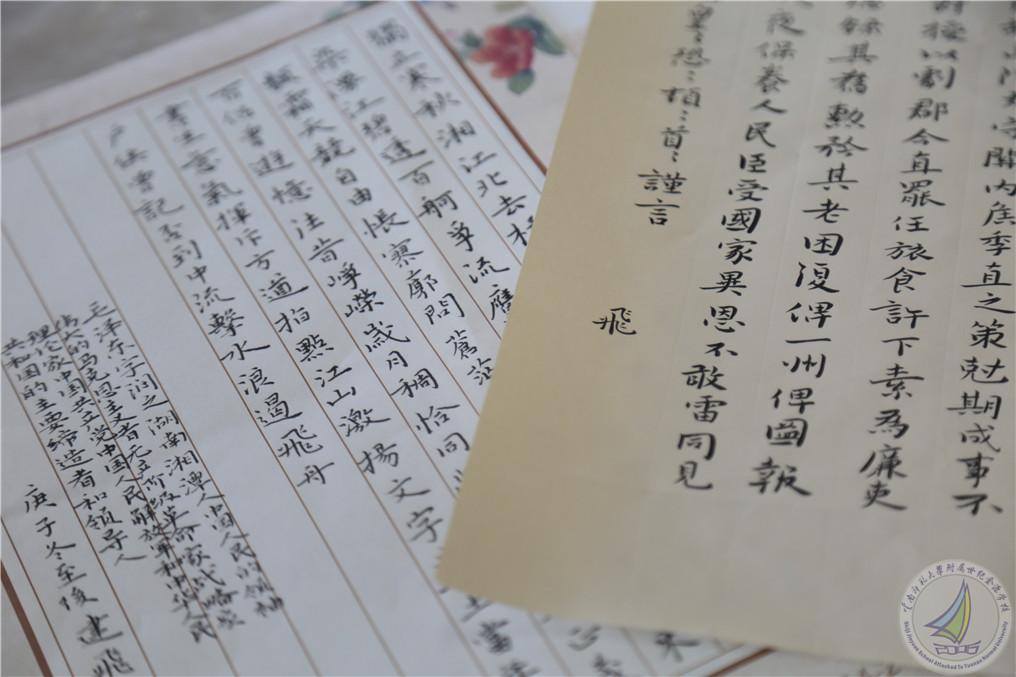 關內侯季直之策尅期成事不
授以割郡今直罷任旅食許下素為廉吏
錄其舊勳矜其老困復俾一州俾圖報
夜保養人民臣受國家異恩不敢雷同見
皇〻恐〻頓〻首〻謹言
飛
獨立寒秋湘江北去橘
染漫江碧透百舸爭流鷹
類霜天競自由悵寥廓問蒼茫
百侶曾遊憶往昔崢嶸歲月稠恰同
書生意氣揮斥方遒指點江山激揚文字
戶侯曾記否到中流擊水浪遏飛舟
毛泽东字润之湖南湘潭人中国人民的领袖
伟大的马克思主义者无产阶级革命家战略家
理论家中国共产党中国人民解放軍和中华人民
共和国的主要缔造者和领导人
庚子冬至後建飛
云南师范大學附属世纪金源学校
Shiji Jinyuan School Attached To Yunnan Normal University